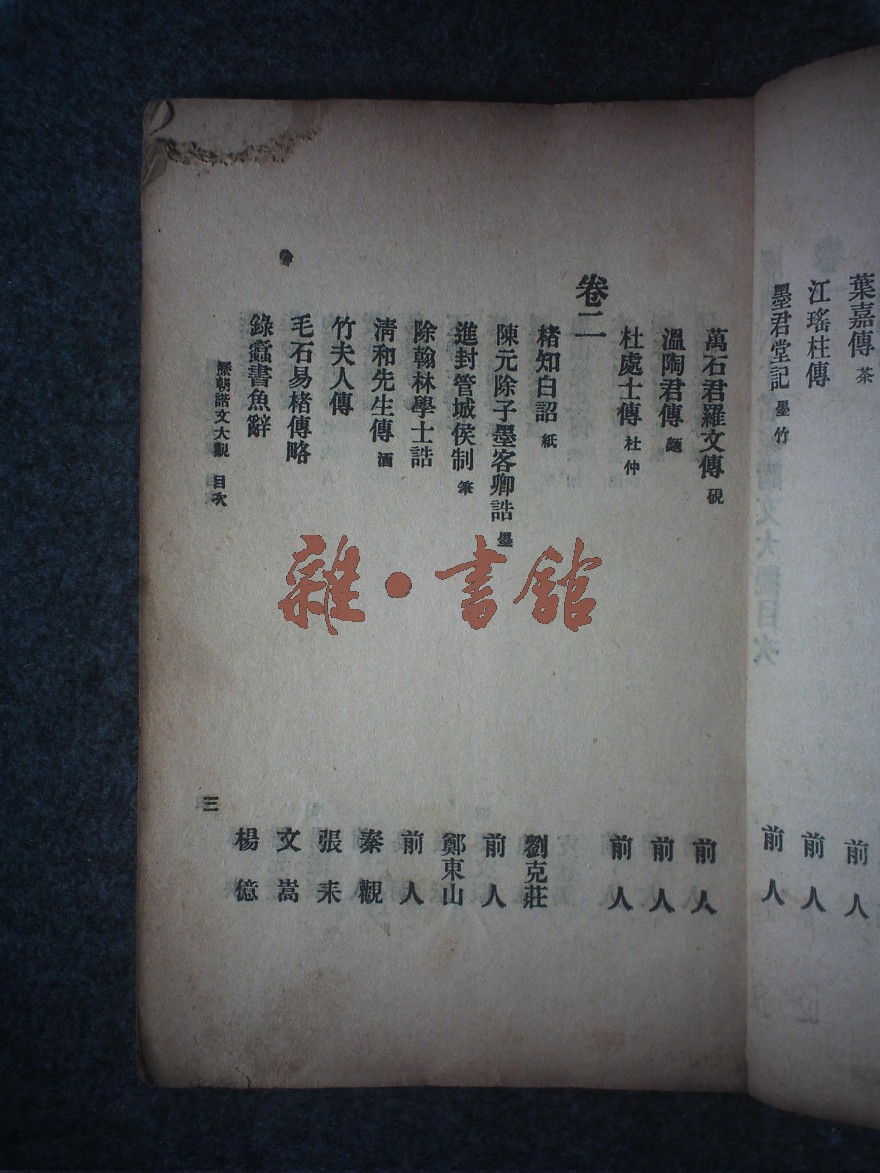 葉嘉傳 茶 前人
江瑤柱傳 前人
墨君堂記 墨竹 前人
萬石君羅文傳 硯 前人
溫陶君傳 麵 前人
杜處士傳 杜仲 前人
卷二
楮知白詔 紙 劉克莊
陳元除子墨客卿誥 墨 前人
進封管城侯制 筆 鄭東山
除翰林學士誥 前人
清和先生傳 酒 秦觀
竹夫人傳 張耒
毛石易楮傳略 文嵩
錄蠹書魚辭 楊億
歷朝諧文大觀 目次 三
雜·書館